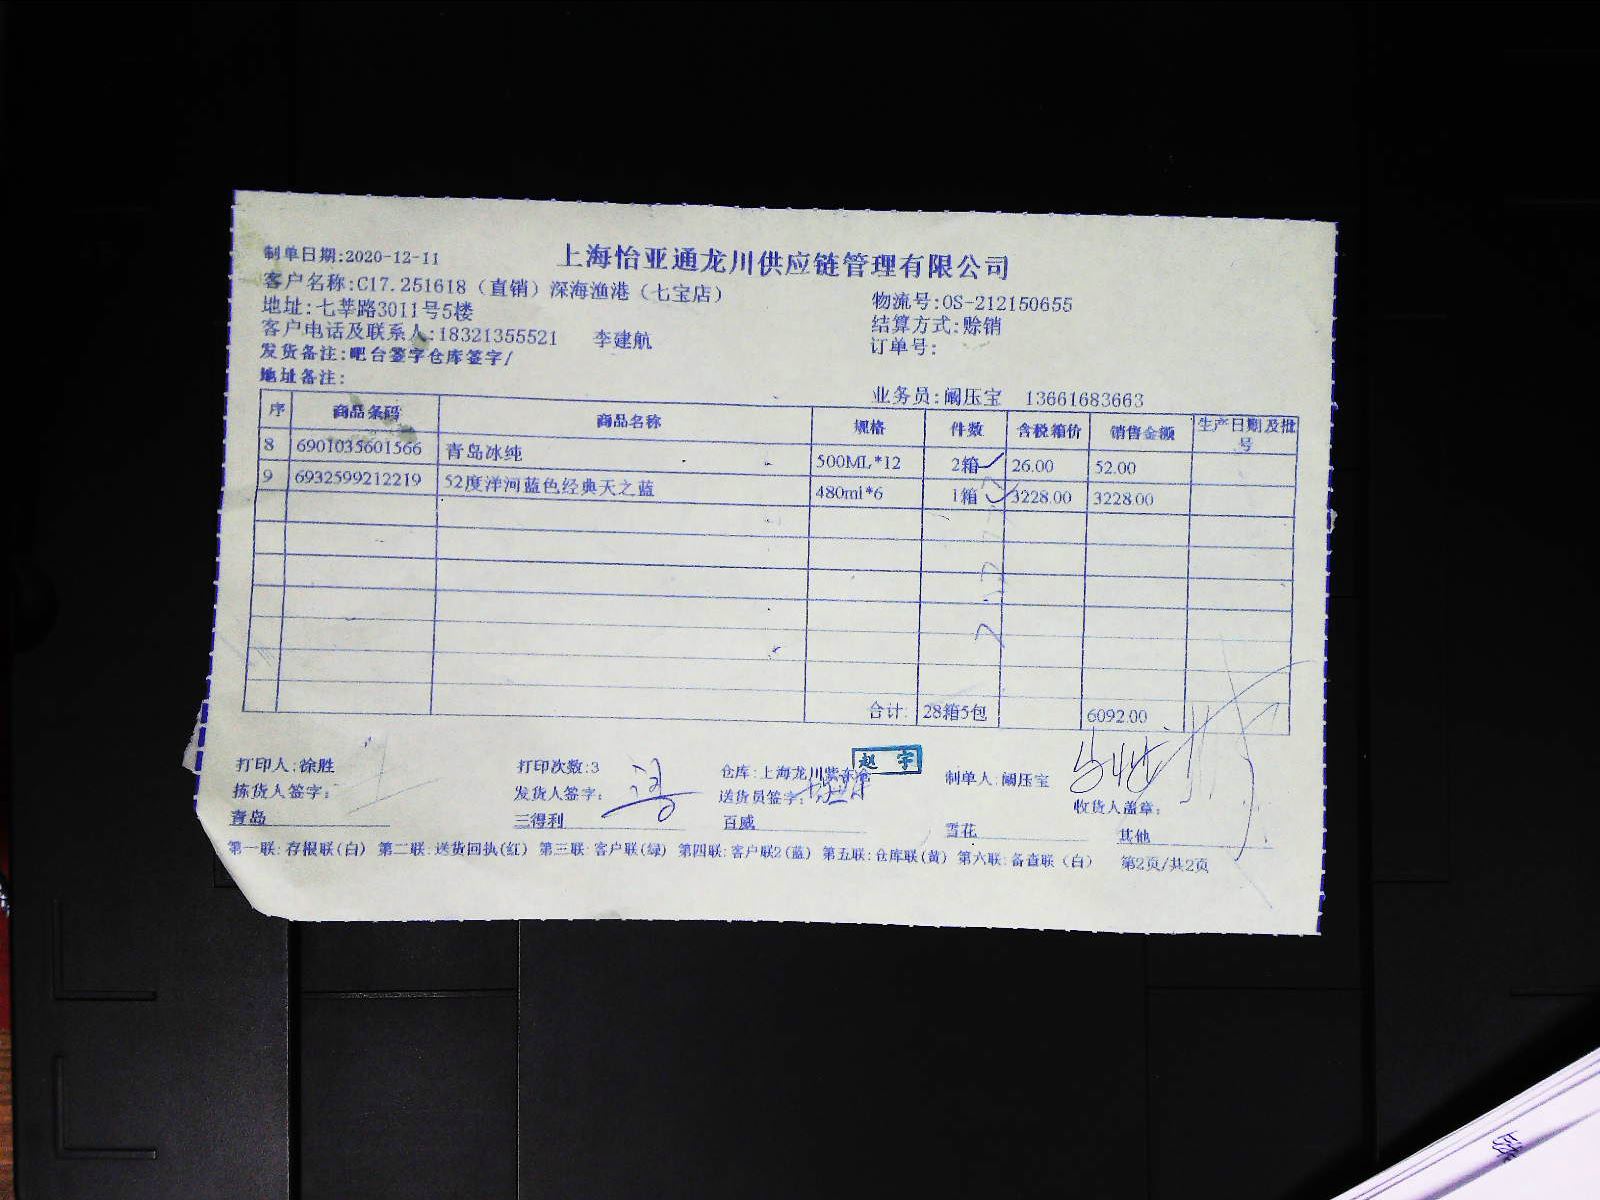 制单日期:2020-12-11
上海怡亚通龙川供应链管理有限公司
客户名称:C17.251618（直销）深海渔港（七宝店）
物流号:OS-212150655
地址:七莘路3011号5楼
结算方式:赊销
客户电话及联系人:18321355521 李建航
订单号:
发货备注:吧台签字仓库签字/
地址备注:
业务员:阚压宝 13661683663
序 商品条码 商品名称 规格 件数 含税箱价 销售金额 生产日期及批号
8 6901035601566 青岛冰纯 500ML*12 2箱 26.00 52.00
9 6932599212219 52度洋河蓝色经典天之蓝 480ml*6 1箱 3228.00 3228.00
合计: 28箱5包 6092.00
打印人:徐胜 打印次数:3 仓库:上海龙川紫东仓 赵宇 制单人:阚压宝
拣货人签字: 发货人签字: 送货员签字: 收货人盖章:
青岛 三得利 百威 雪花 其他
第一联:存根联(白) 第二联:送货回执(红) 第三联:客户联(绿) 第四联:客户联2(蓝) 第五联:仓库联(黄) 第六联:备查联（白） 第2页/共2页